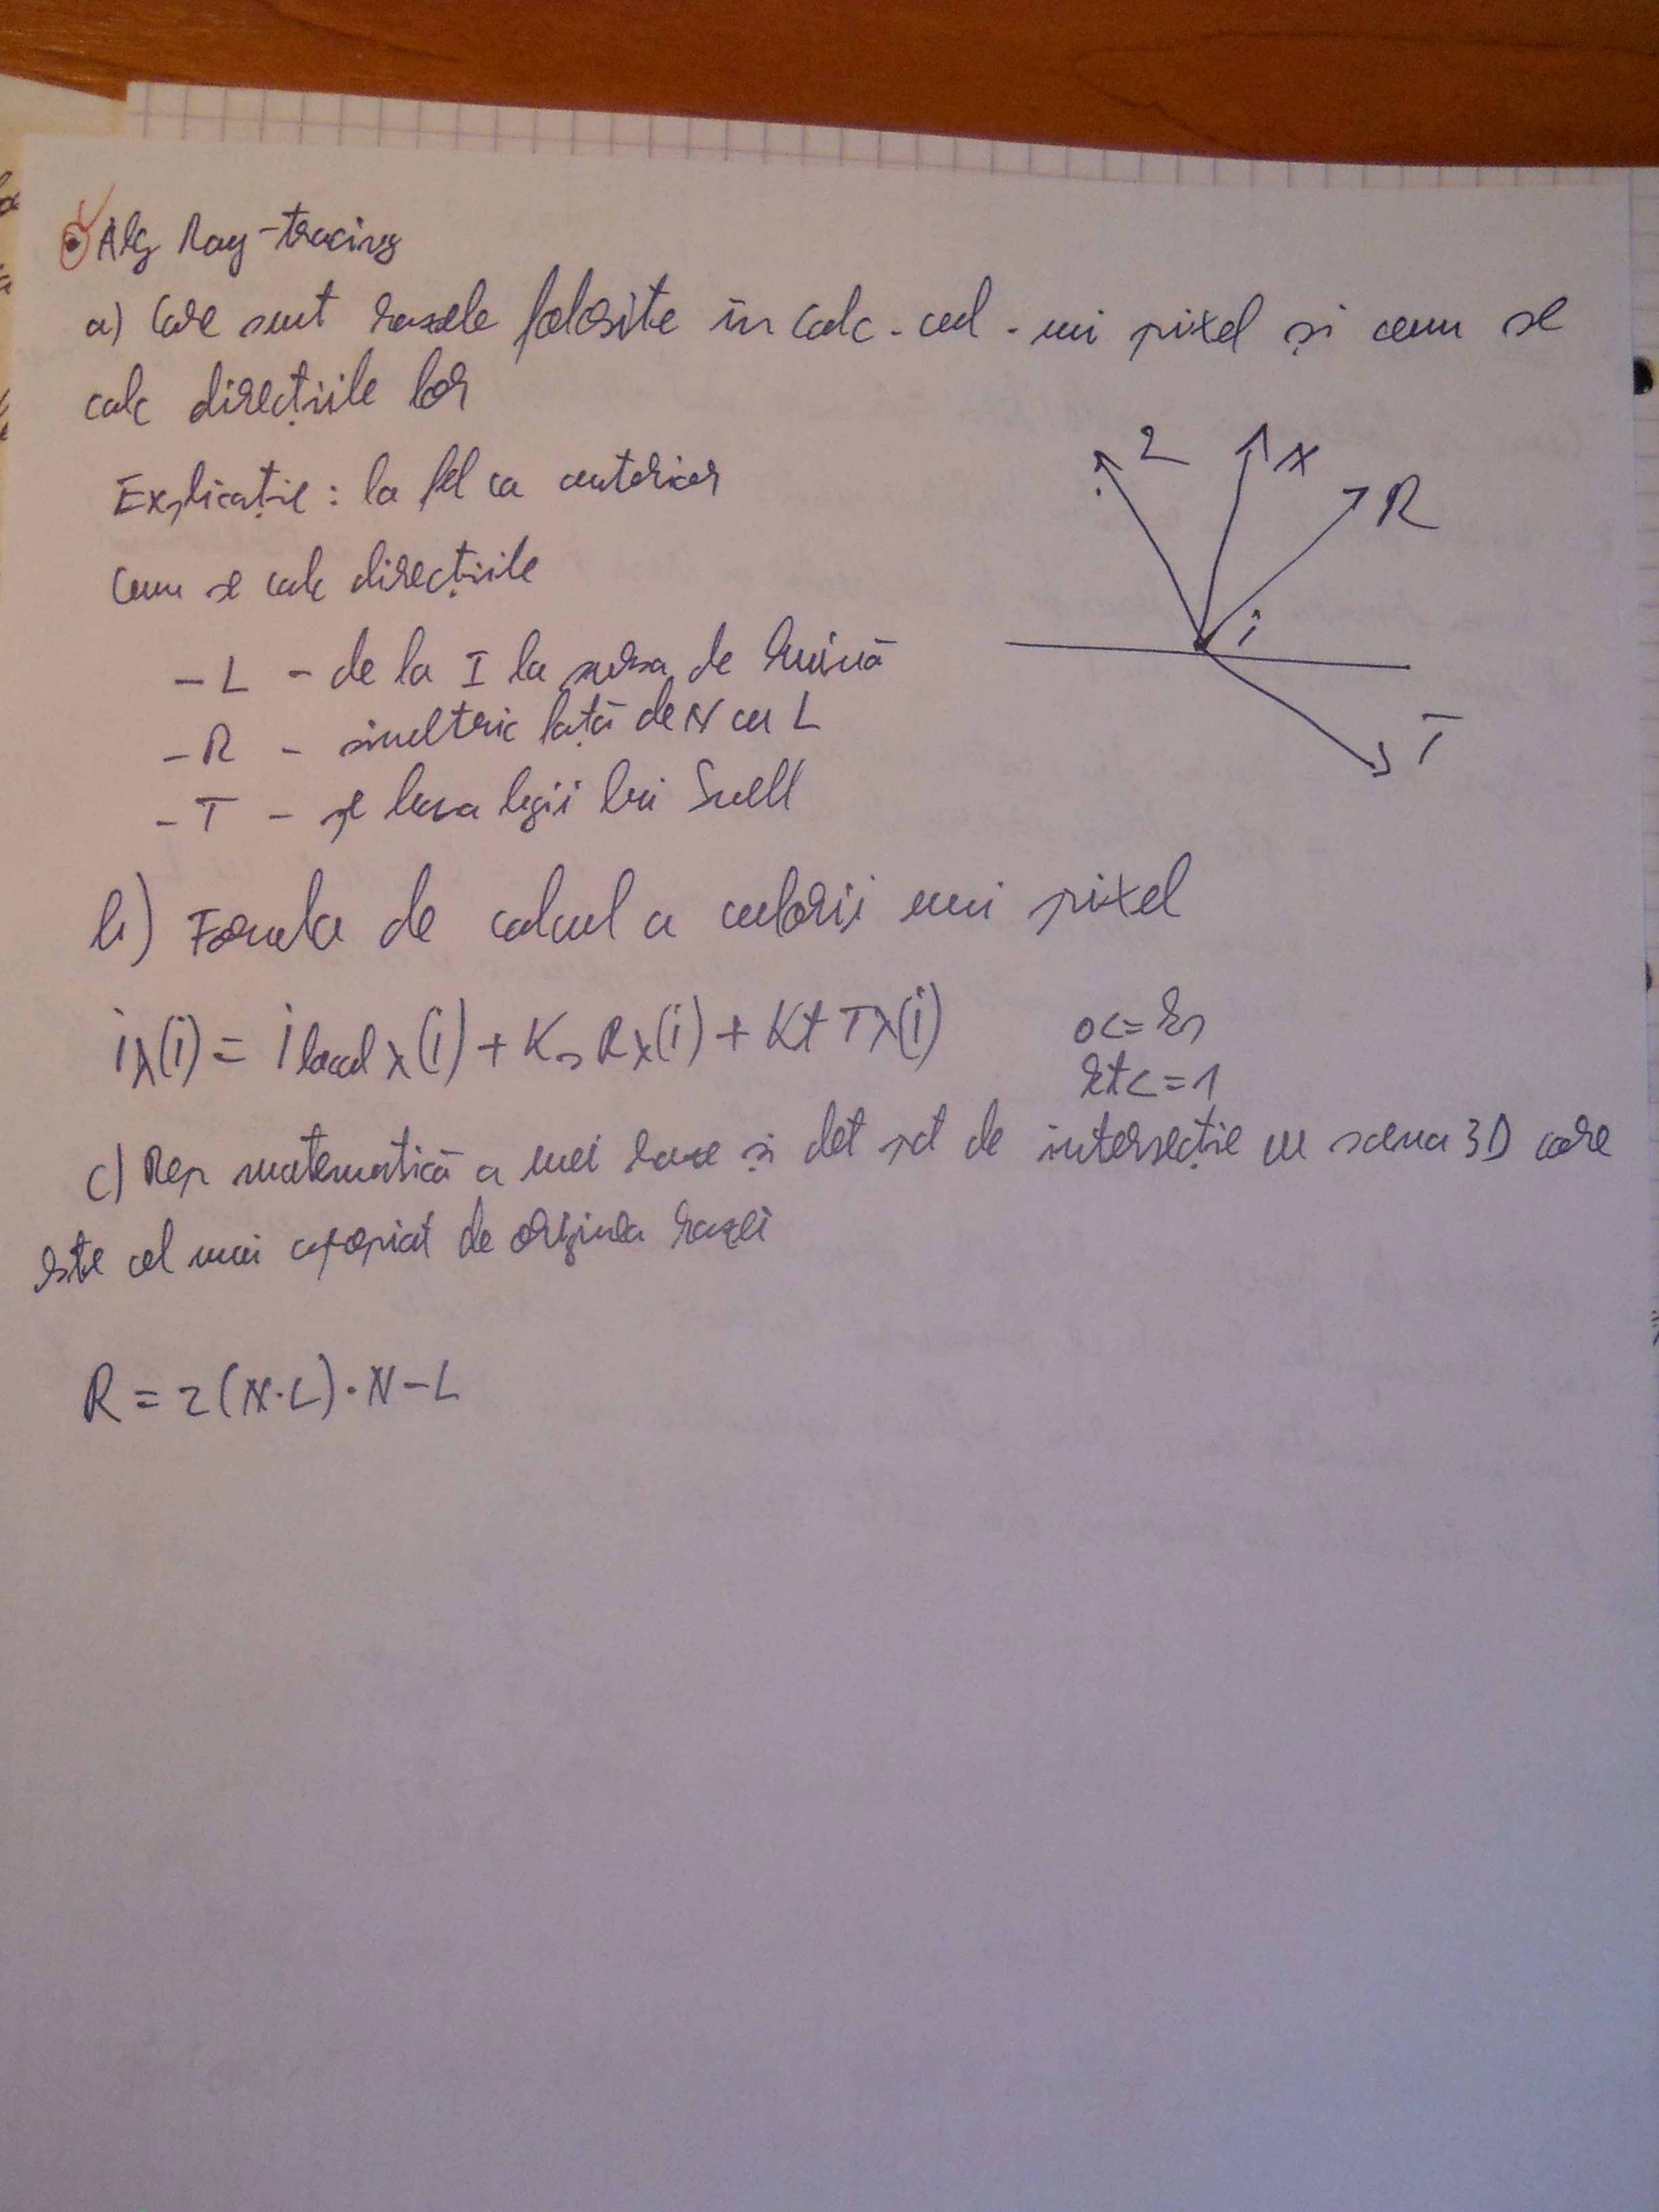 Alg Ray-tracing
a) Care sunt razele folosite in calc. cul. unui pixel și cum se
calc direcțiile lor
L N R
Explicație: la fel ca anterior
i
Cum se calc direcțiile
- L - de la I la sursa de lumină
- R - simetric față de N cu L
T
- T - pe baza legii lui Snell
b) Formula de calcul a culorii unui pixel
iλ(i) = i local λ(i) + Ks Rλ(i) + Kt Tλ(i) 0<=ks
kt<=1
c) Rep matematică a unei raze și det pct de intersecție cu scena 3D care
este cel mai apropiat de originea razei
R = 2(N·L)·N-L